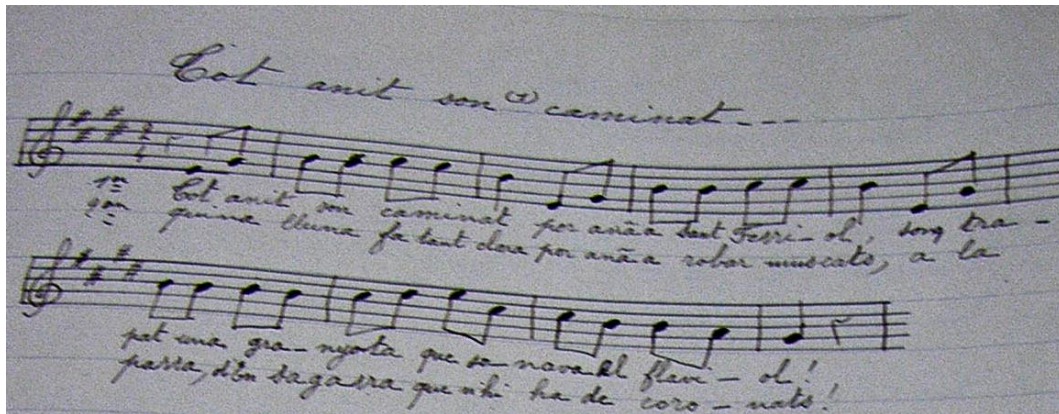 Tot anit son (1) caminat---
1ª Tot anit son caminat per anâ a Sant Ferri-ol, song tra-
2ªn quina lluna fa tant clara per anâ a robar muscats, a la
pat una gra-nyota que so-nava el flavi-ol!
parra, d'En Sagarra que n'hi ha de coro-nats!